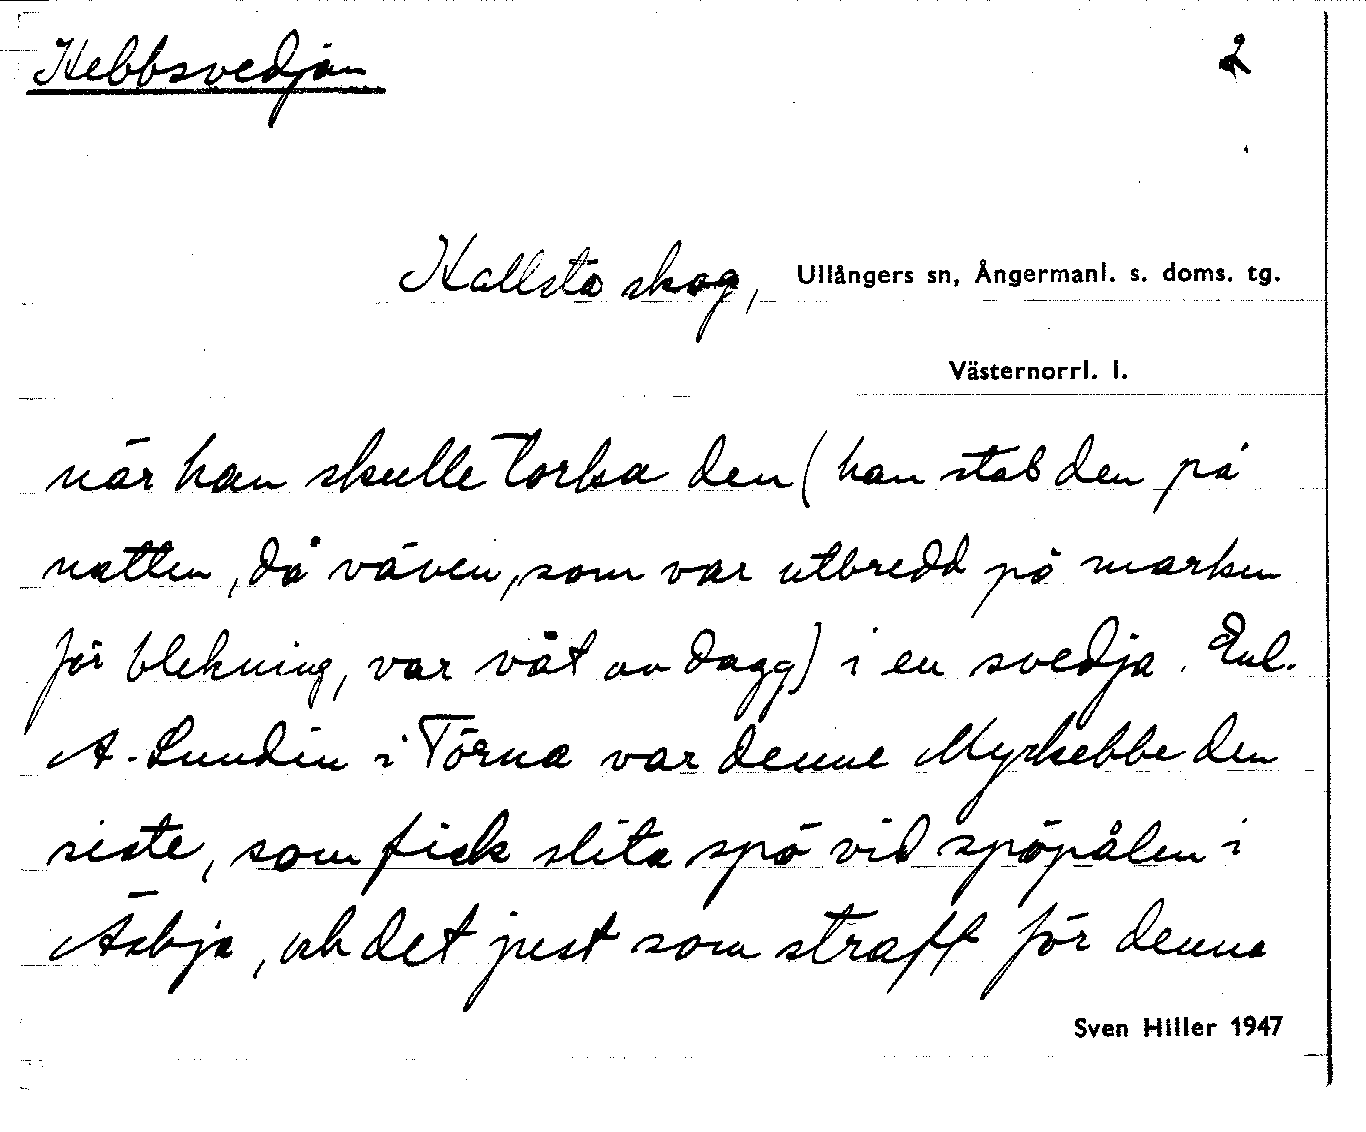 Kebbsvedjan 2
Kallsta skog, Ullångers sn, Ångermanl. s. doms. tg.
Västernorrl. l.
när han skulle torka den (han stal den på
natten, då väven, som var utbredd på marken
för blekning, var våt av dagg) i en svedja. Enl.
A. Lundin i Törna var denne Myrkebbe den
siste, som fick slita spö vid spöpålen i
Äskja, och det just som straff för denna
Sven Hiller 1947